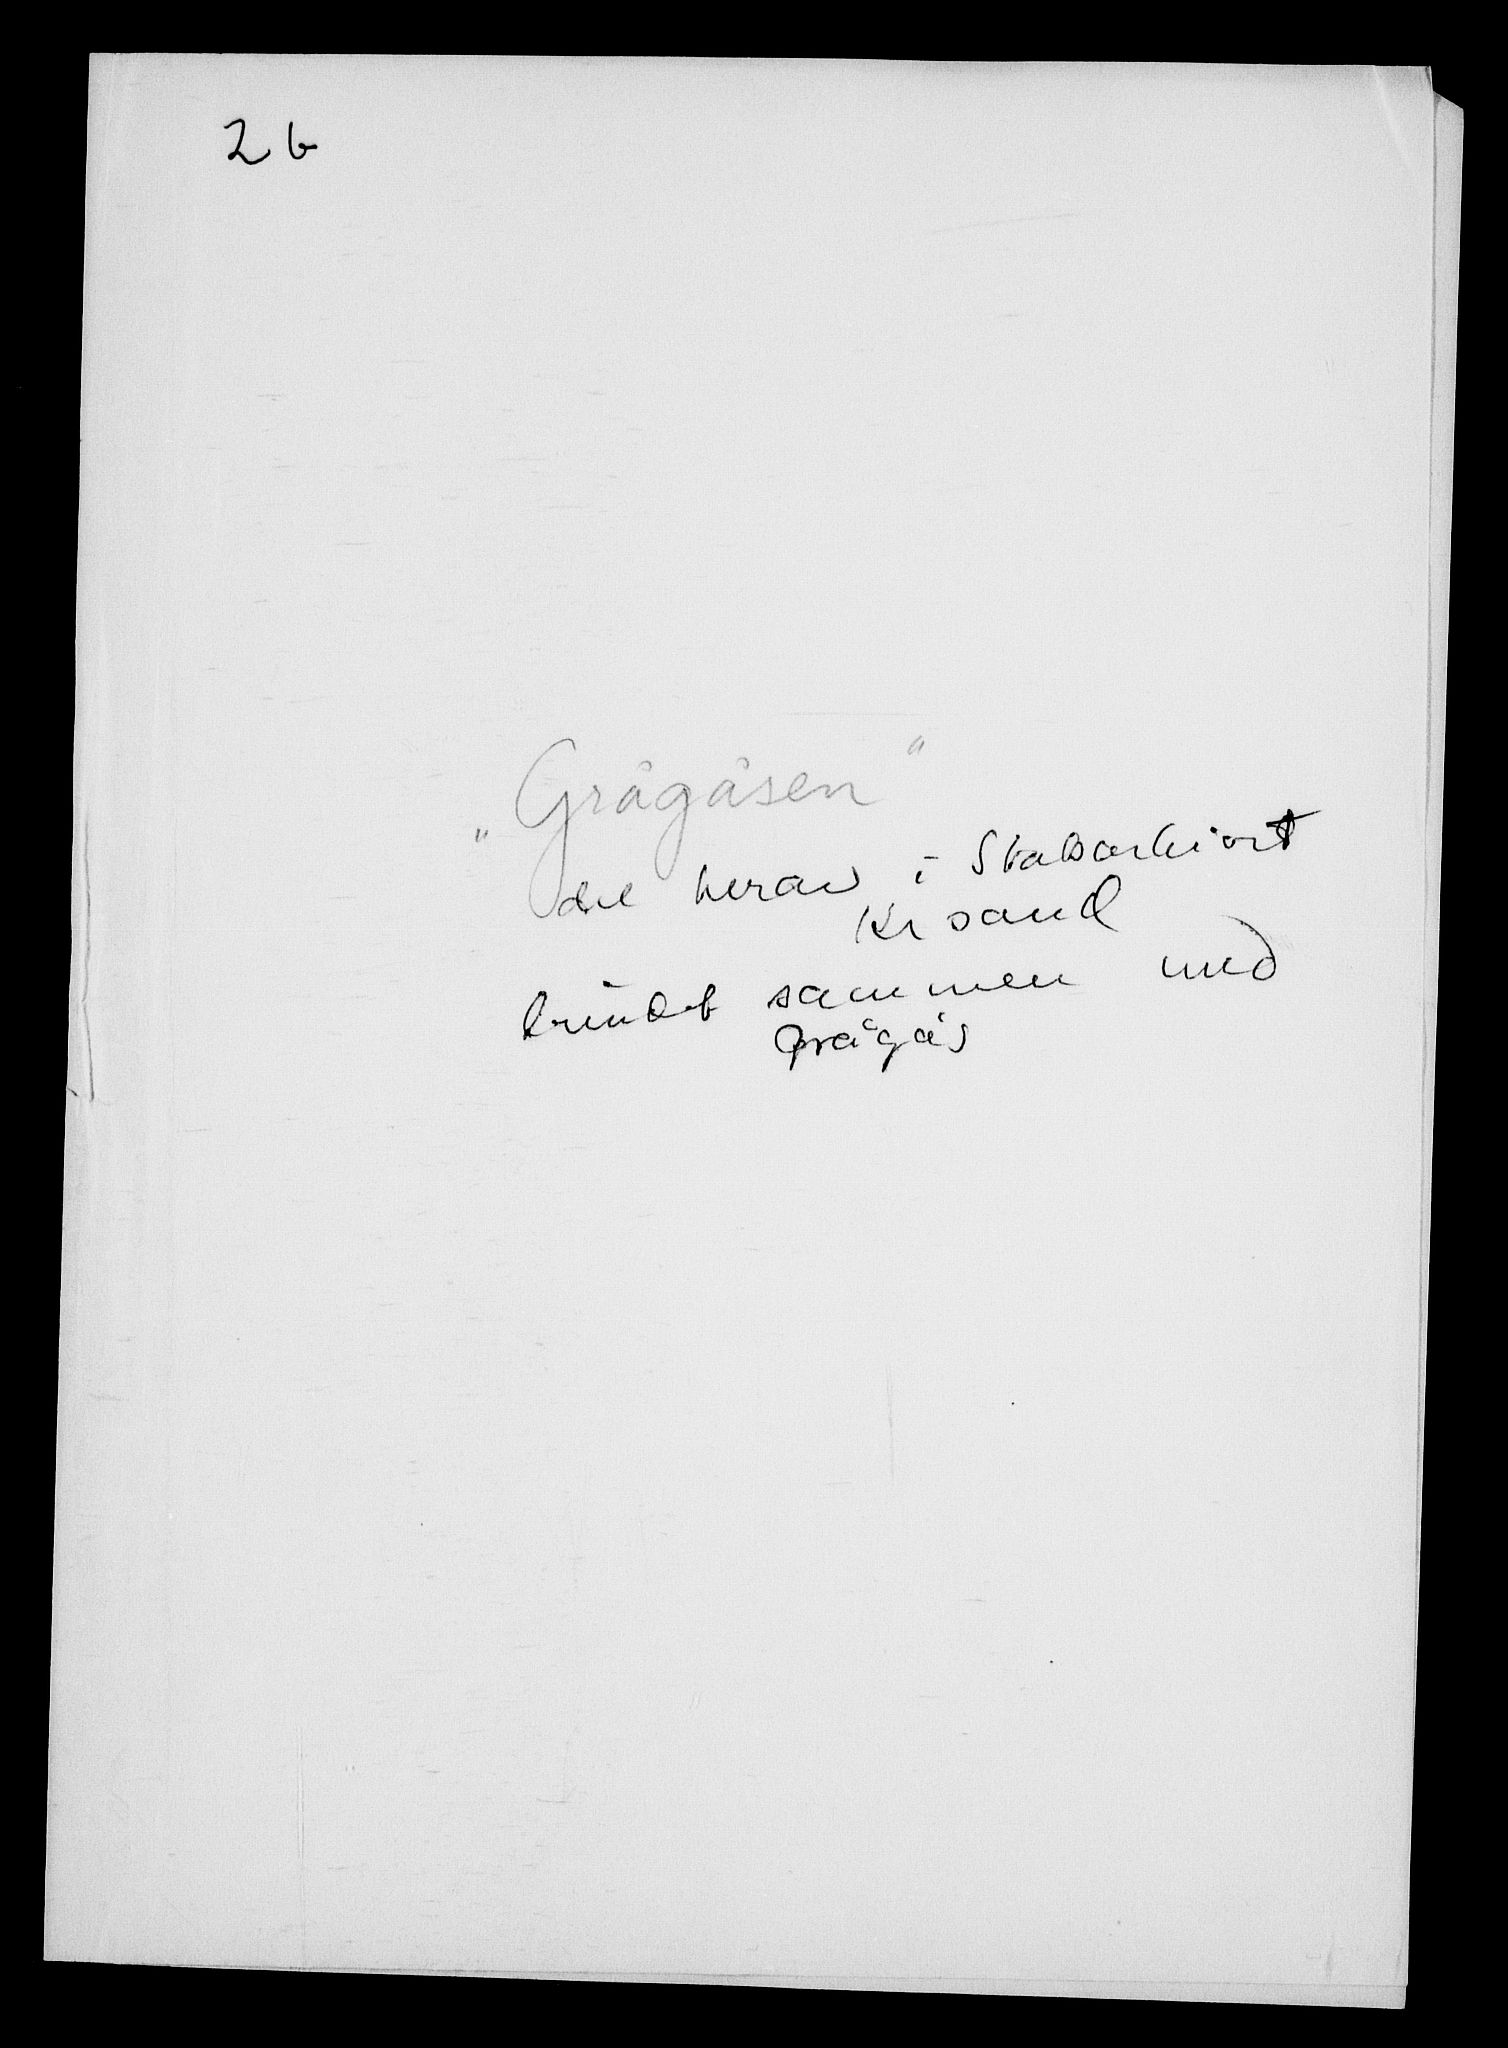 2 b
„Grågåsen"
del herav i Statsarkivet
Kr sand
bundet sammen med
Grågås